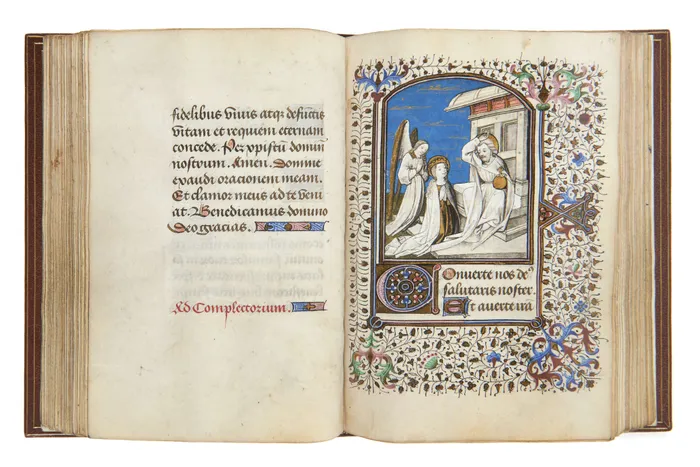 fidelibus vivis atqz defunctis
vitam et requiem eternam
concede. Per xpistū dominū
nostrum. Amen. Domine
exaudi orationem meam.
Et clamor meus ad te veni
at. Benedicamus domino
Deo gracias.
Ad Complectorium.
Onverte nos deꝰ
salutaris noster.
Et averte irā